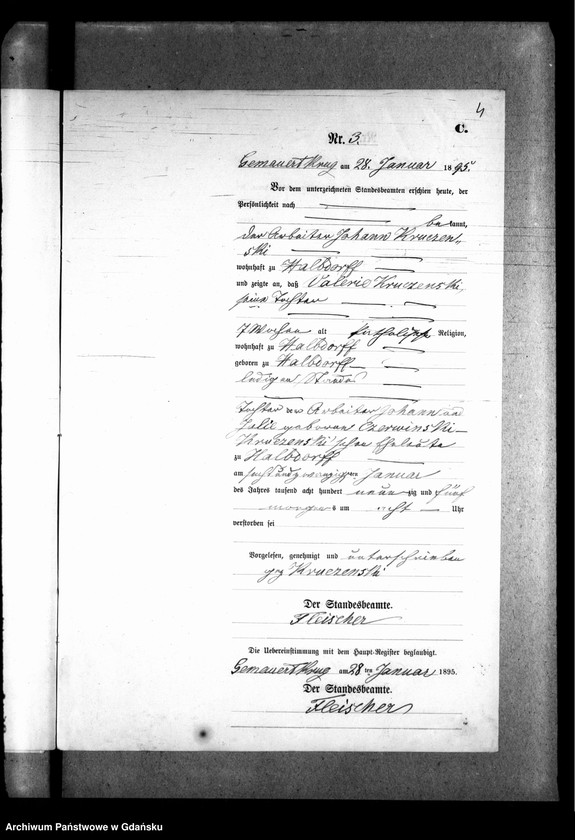 4
C.
Nr. 3.
Gemauert Krug am 28. Januar 1895.
Vor dem unterzeichneten Standesbeamten erschien heute, der
Persönlichkeit nach
bekannt,
der Arbeiter Johann Kruczen-
ski
wohnhaft zu Halbdorff
und zeigte an, daß Valerie Kruczenski,
seine Tochter
7 Wochen alt katholischer Religion,
wohnhaft zu Halbdorff
geboren zu Halbdorff
ledigen Standes
Tochter der Arbeiter Johann und
Julie geborene Czerwinski-
Kruczenski'schen Eheleute
zu Halbdorff
am sechsundzwanzigsten Januar
des Jahres tausend acht hundert neunzig und fünf
morgens um acht Uhr
verstorben sei
Vorgelesen, genehmigt und unterschrieben
gez Kruczenski
Der Standesbeamte.
Fleischer
Die Uebereinstimmung mit dem Haupt-Register beglaubigt.
Gemauert Krug am 28ten Januar 1895.
Der Standesbeamte.
Fleischer
Archiwum Państwowe w Gdańsku